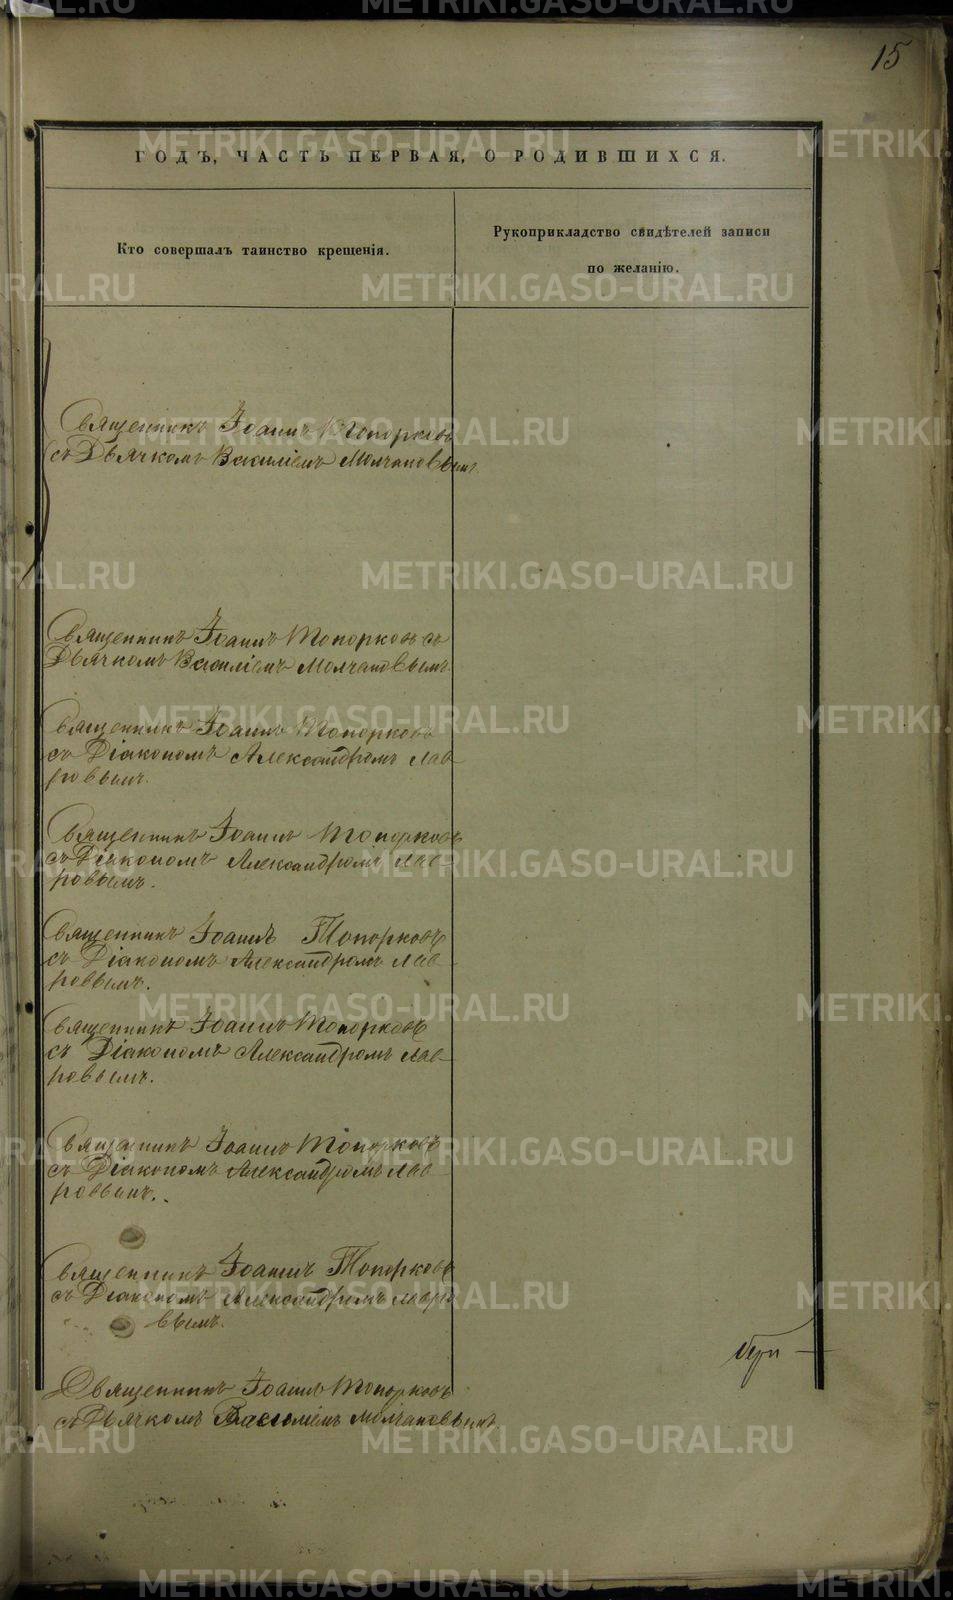 15
ГОДЪ, ЧАСТЬ ПЕРВАЯ, О РОДИВШИХСЯ.
Кто совершалъ таинство крещенія.
Рукоприкладство свидѣтелей записи
по желанію.
Священникъ Іоаннъ Топорковъ
съ Дьячкомъ Василіемъ Молчановымъ
Священникъ Іоаннъ Топорковъ съ
Дьячкомъ Василіемъ Молчановымъ.
Священникъ Іоаннъ Топорковъ
съ Діакономъ Александромъ Лав-
ровымъ.
Священникъ Іоаннъ Топорковъ
съ Діакономъ Александромъ Лав-
ровымъ.
Священникъ Іоаннъ Топорковъ
съ Діакономъ Александромъ Лав-
ровымъ.
Священникъ Іоаннъ Топорковъ
съ Діакономъ Александромъ Лав-
ровымъ.
Священникъ Іоаннъ Топорковъ
съ Діакономъ Александромъ Лав-
ровымъ.
Священникъ Іоаннъ Топорковъ
съ Діакономъ Александромъ Лавро
вымъ.
Священникъ Іоаннъ Топорковъ
съ Дьячкомъ Василіемъ Молчановымъ.
METRIKI.GASO-URAL.RU